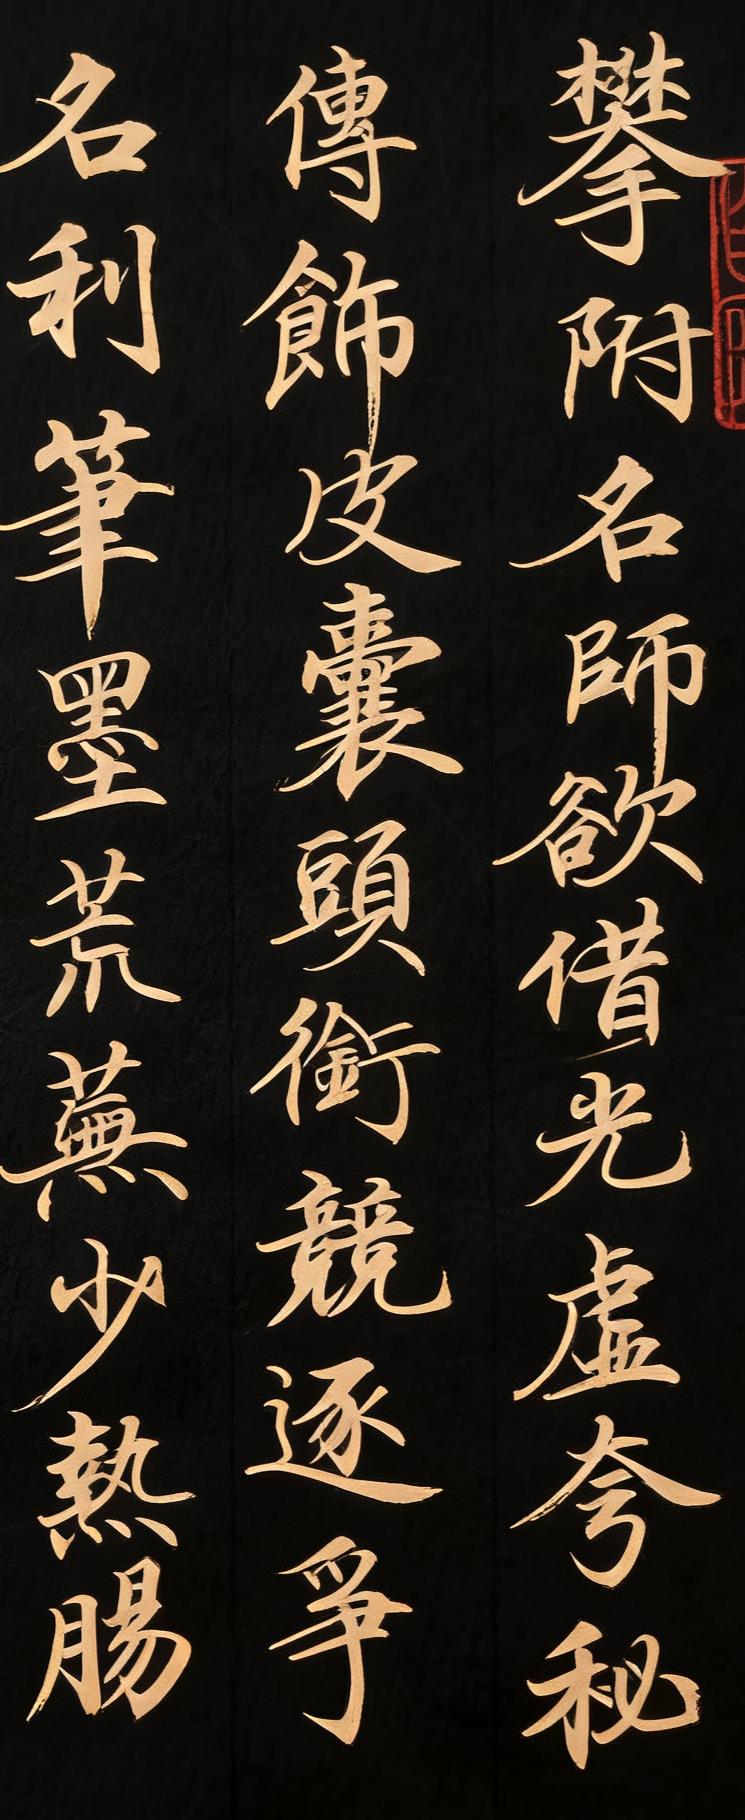 攀附名師欲借光虛夸秘
傳飾皮囊頭銜競逐爭
名利筆墨荒蕪少熱腸